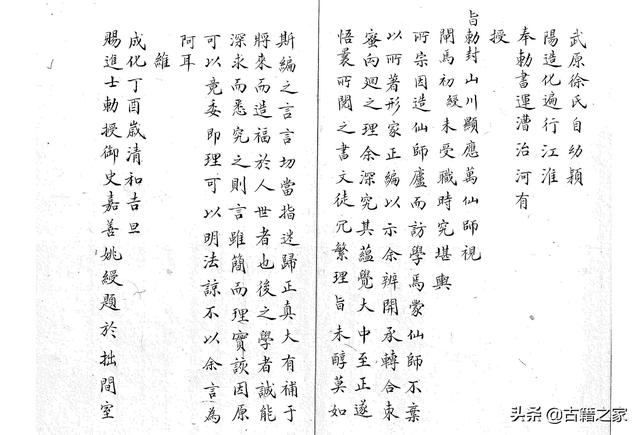 武原徐氏自幼穎
陽造化遍行江淮
奉勅書運漕治河有
授
旨勅封山川顯應萬仙師視
閒馬初綬未受職時究堪輿
所宗因造仙師廬而訪學焉蒙仙師不棄
以所著形家正編以示余辨開承轉合束
蜜向廻之理余深究其蘊覺大中至正遂
悟曩所閱之書文徒冗繁理旨未醇莫如
斯編之言言切當指迷歸正真大有補于
將來而造福於人世者也後之學者誠能
深求而悉究之則言雖簡而理實該因原
可以竟委即理可以明法諒不以余言為
阿耳
維
成化丁酉歲清和吉旦
賜進士勅授御史嘉善姚綬題於拙閒室
头条 @古籍之家